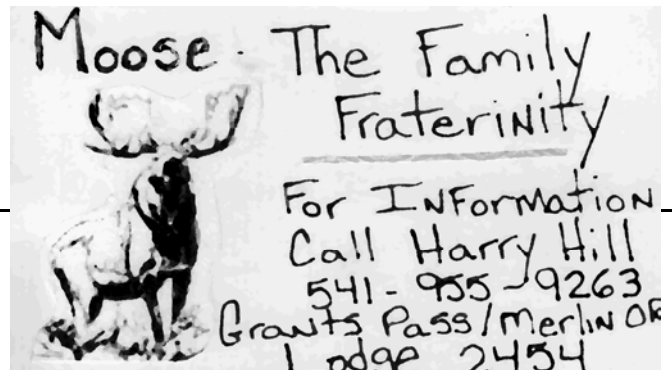 Moose. The Family
Fraterinity
For Information
Call Harry Hill
541-955-9263
Grants Pass/Merlin OR
Lodge 2454